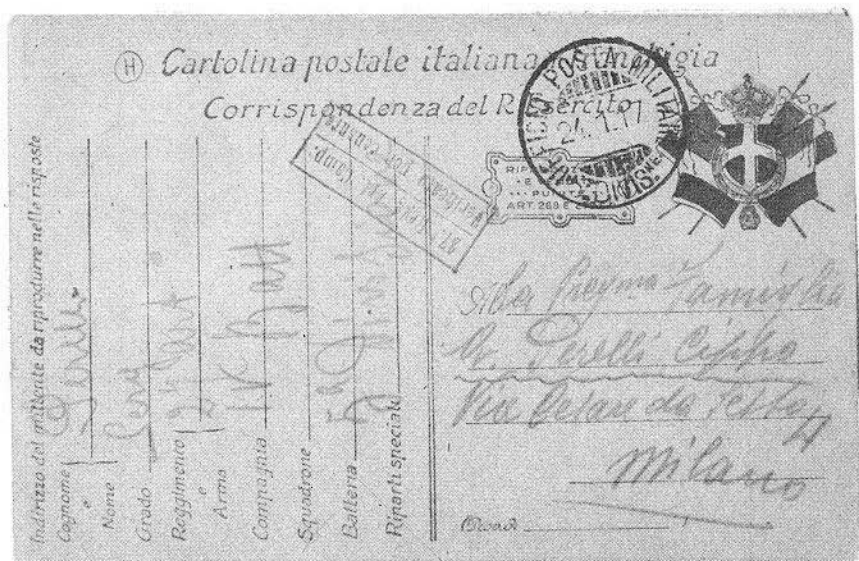 (H) Cartolina postale italiana in franchigia
Corrispondenza del R. Esercito
UFFICIO POSTA MILITARE
24.1.17
DIVISIONE
ART. 268 E
Verificato per censura
Indirizzo del mittente da riprodurre nelle risposte
Cognome
e
Nome
Grado
Reggimento
e
Arma
Compagnia
Squadrone
Batteria
Riparti speciali
Perelli
Serg
IV Batt
Alla Preg.ma Famiglia
Perelli Cippo
Via Cesare da Sesto
Milano